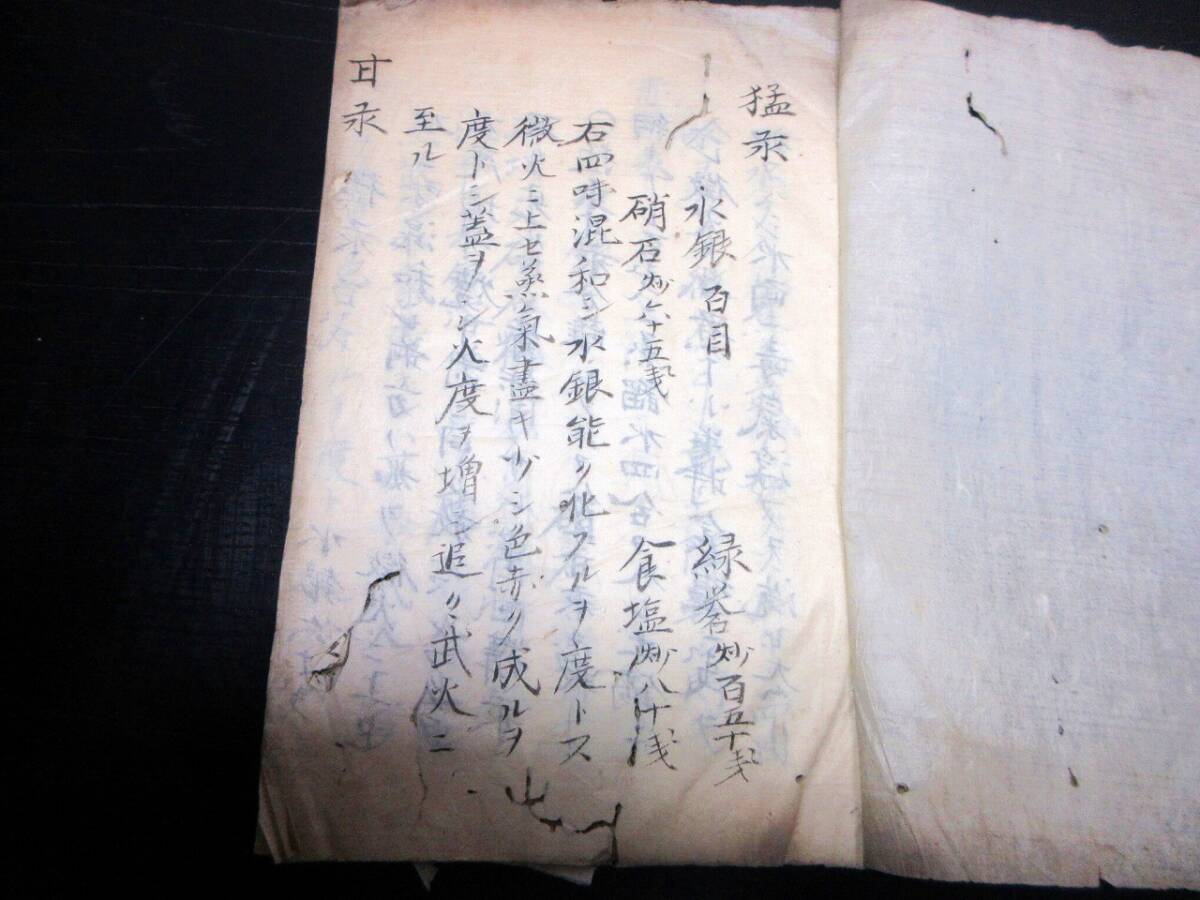 猛汞
水銀百目 緑礬炒百五十戔
硝石炒六十五戔 食塩炒八十戔
右四味混和シ水銀能ク化フルヲ度トス
微火ニ上セ蒸氣盡キ少シ色赤ク成ルヲ
度トシ蓋ヲノシ火度ヲ増シ追々武火ニ
至ル
甘汞